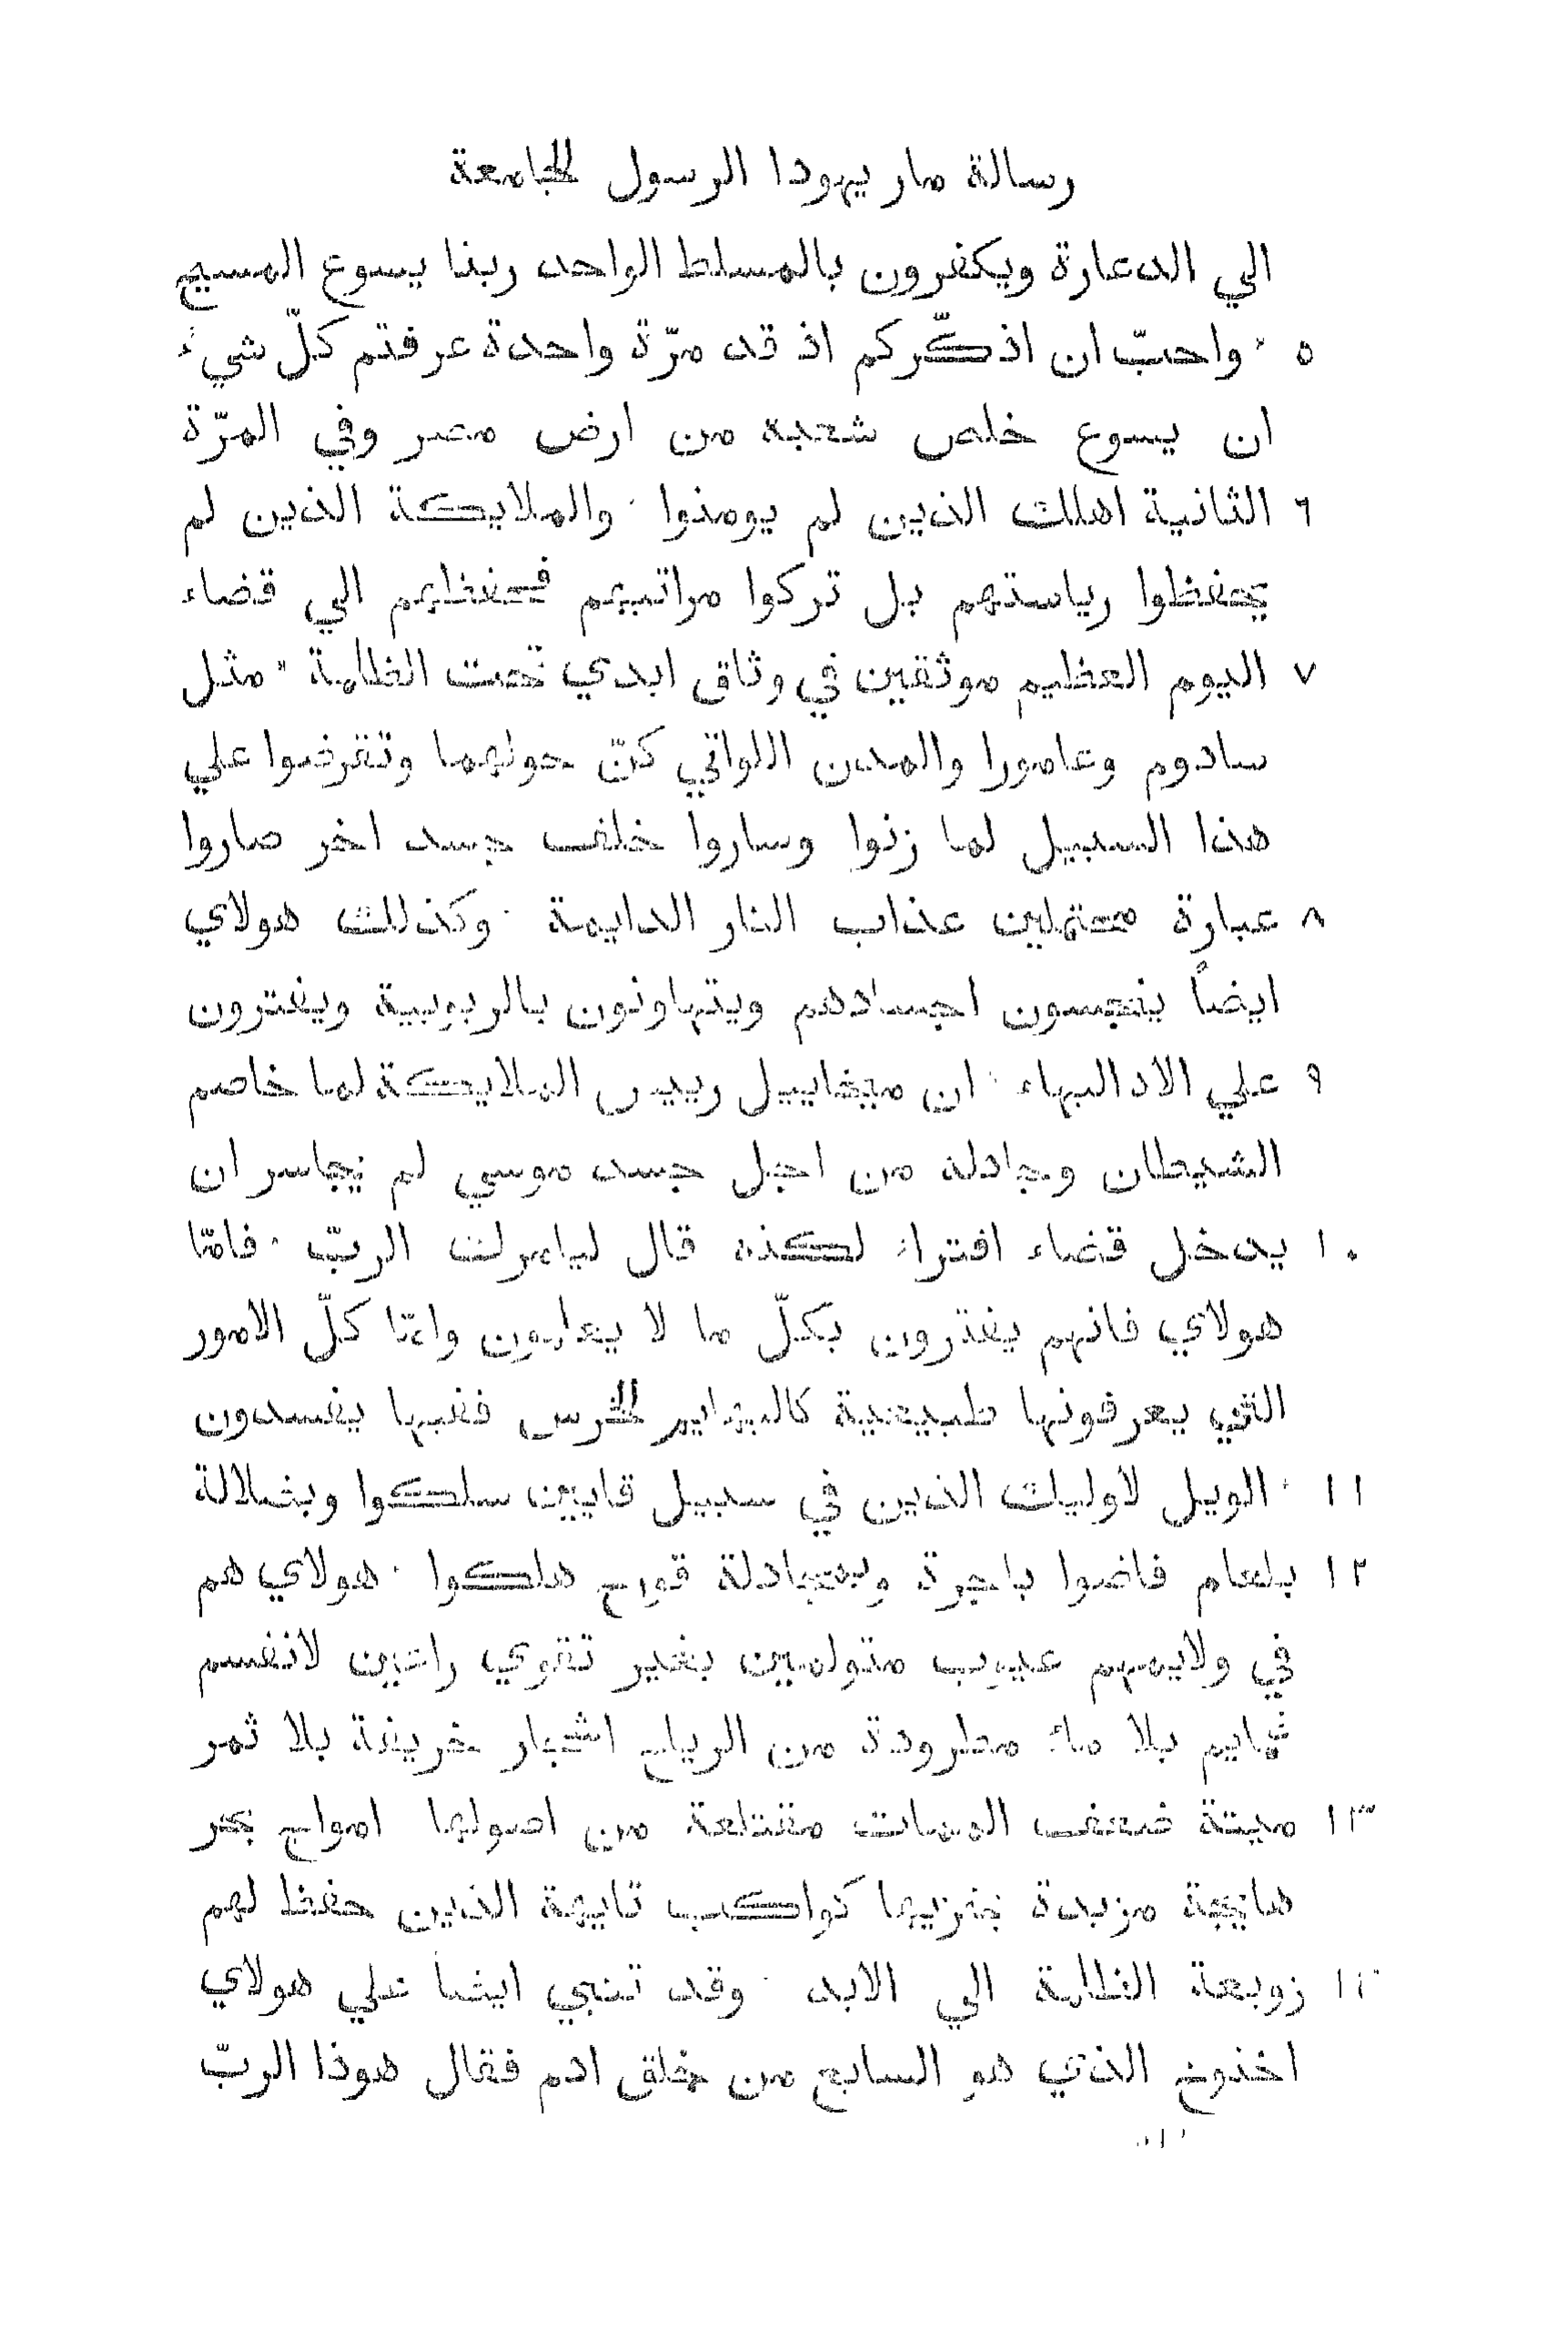 رسالة مار يهودا الرسول الجامعة
الي الدعارة ويكفرون بالمسلط الواحد ربنا يسوع المسيح
٥ واحبّ ان اذكّركم اذ قد مرّة واحدة عرفتم كلّ شيء
ان يسوع خلص شعبه من ارض مصر وفي المرّة
٦ الثانية اهلك الذين لم يومنوا والملايكة الذين لم
يحفظوا رياستهم بل تركوا مراتبهم فحفظهم الي قضاء
٧ اليوم العظيم موثقين في وثاق ابدي تحت الظلمة مثل
سادوم وعامورا والمدن اللواتي كنّ حولهما وتقرضوا علي
هذا السبيل لما زنوا وساروا خلف جسد اخر صاروا
٨ عبارة محتملين عذاب النار الدايمة وكذلك هولاي
ايضاً ينجسون اجسادهم ويتهاونون بالربوبية ويفترون
٩ علي الاد البهاء ان ميخاييل رييس الملايكة لما خاصم
الشيطان وجادله من اجل جسد موسي لم يجاسر ان
١٠ يدخل قضاء افتراء لكنه قال ليامرك الربّ فامّا
هولاي فانهم يفترون بكلّ ما لا يعلمون وامّا كلّ الامور
التي يعرفونها طبيعية كالبهايم الخرس ففيها يفسدون
١١ الويل لاوليك الذين في سبيل قايين سلكوا وبضلالة
١٢ بلعام فاضوا باجرة وبمجادلة قورح هلكوا هولاي هم
في ولايمهم عيوب متولمين بغير تقوي راعيين لانفسم
غمايم بلا ماء مطرودة من الرياح اشجار خريفة بلا ثمر
١٣ ميتة ضعف الممات مقتلعة من اصولها امواج بحر
هايجة مزبدة بخزيها كواكب تايهة الذين حفظ لهم
١٤ زوبعة الظلمة الي الابد وقد تنبي ايضا علي هولاي
اخنوخ الذي هو السابع من خلق ادم فقال هوذا الربّ